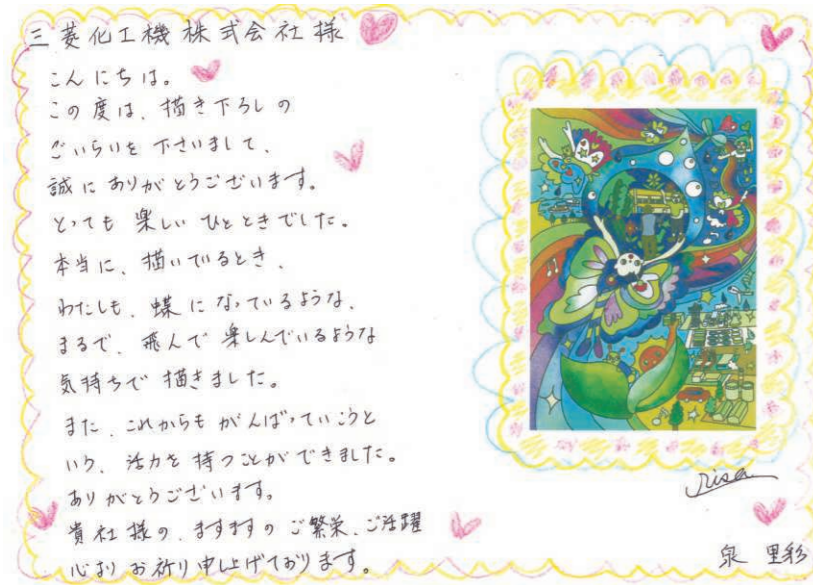 三菱化工機株式会社様
こんにちは。
この度は、描き下ろしの
ごいらいを下さいまして、
誠にありがとうございます。
とっても楽しいひとときでした。
本当に、描いているとき、
わたしも、蝶になっているような、
まるで、飛んで楽しんでいるような
気持ちで描きました。
また、これからもがんばっていこうと
いう、活力を持つことができました。
ありがとうございます。
貴社様の、ますますのご繁栄、ご活躍
心よりお祈り申し上げております。
risa
泉 里彩